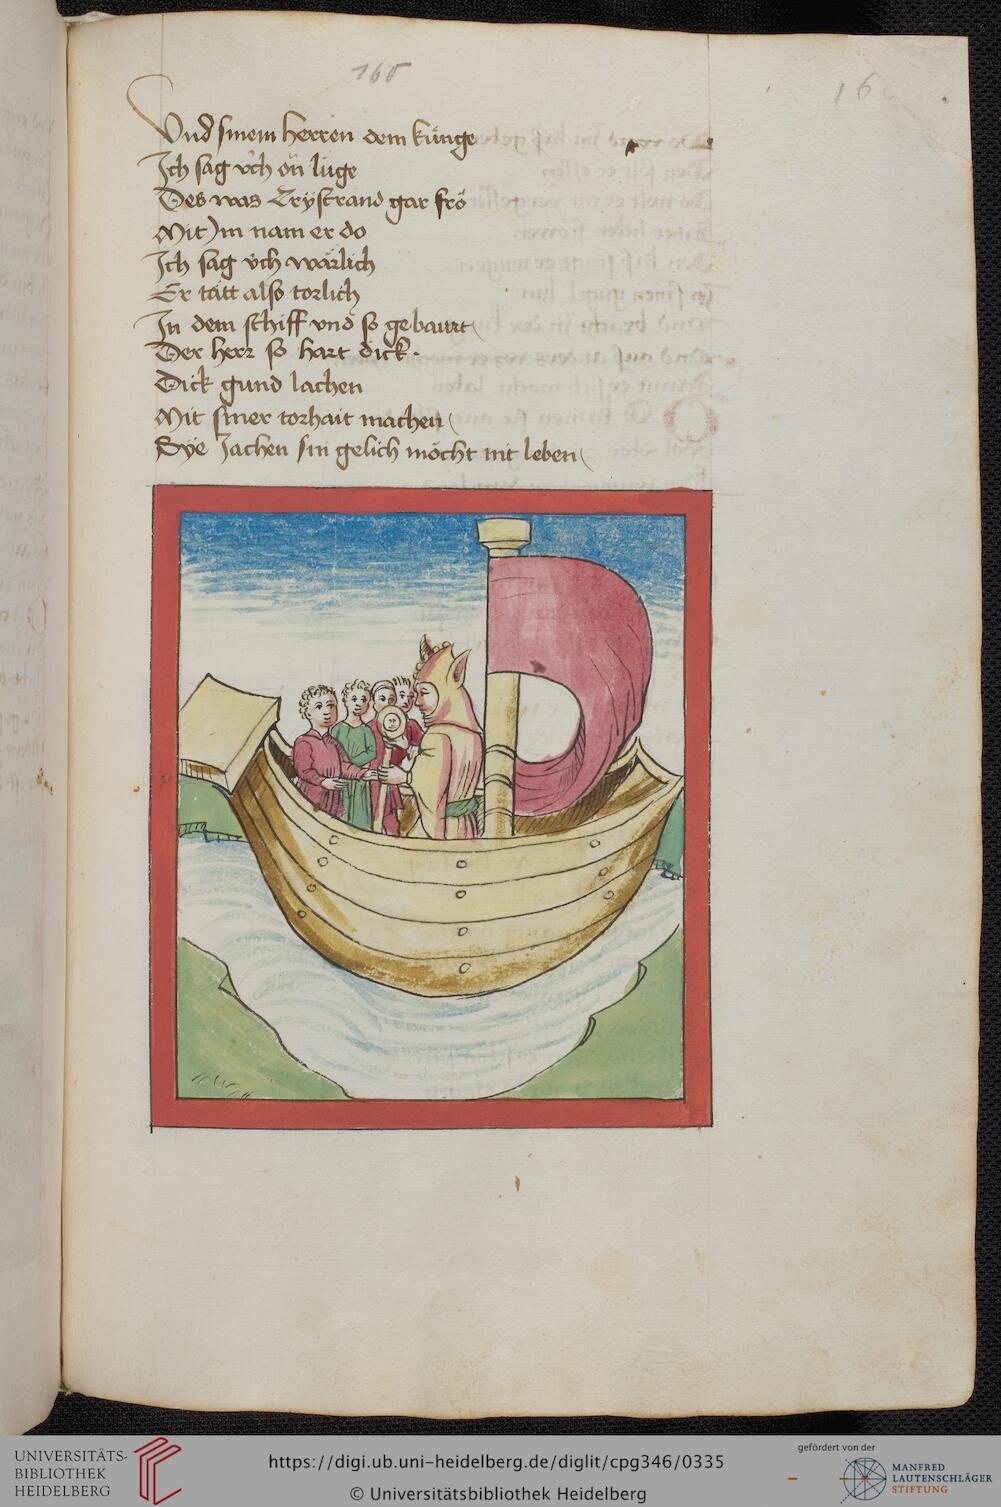 165
16
Vnd sinem herren dem künge
Ich sag v̈ch on lüge
Des was Trystrand gar fro
Mit Jm nam er do
Ich sag v̈ch wärlich
Er tätt also torlich
In dem schiff vnd so gebaurt
Der herr so hart dick.
Dick gund lachen
Mit siner torhait machen
Sye Jachen sin gelich möcht nit leben
UNIVERSITÄTS-
BIBLIOTHEK
HEIDELBERG
https://digi.ub.uni-heidelberg.de/diglit/cpg346/0335
© Universitätsbibliothek Heidelberg
gefördert von der
MANFRED
LAUTENSCHLÄGER
STIFTUNG